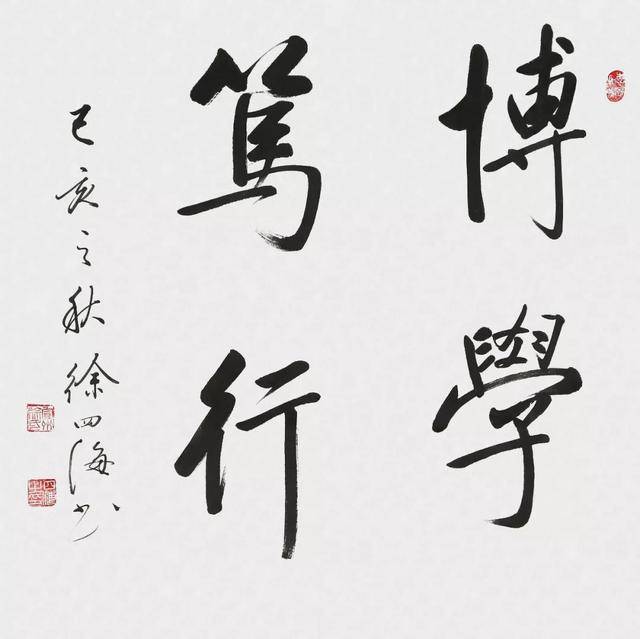 博學
篤行
己亥之秋徐四海书